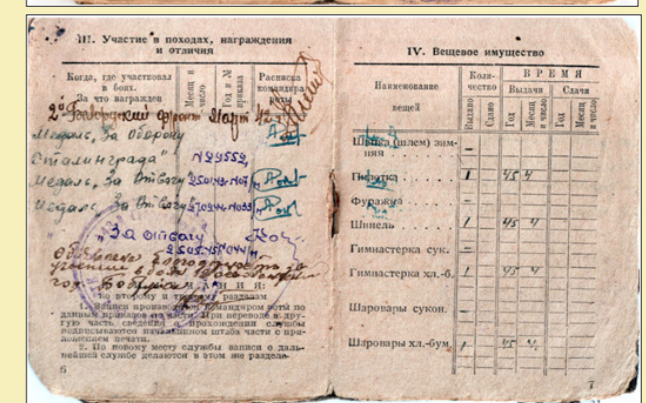 III. Участие в походах, награждения
и отличия
Когда, где участвовал
в боях.
За что награжден
Месяц и
число
Год и №
приказа
Расписка
командира
роты
фронт Март 42
Медаль, За Оборону
Сталинграда"
Медаль, За Отвагу"
Медаль, За Отвагу"
"За отвагу
по второму и разделам
1. Записи производятся командиром роты по
данным приказов по части. При переводе в дру-
гую часть сведения о прохождении службы
подписываются начальником штаба части с при-
ложением печати.
2. По новому месту службы записи о даль-
нейшей службе делаются в этом же разделе.
6
IV. Вещевое имущество
Наименование
вещей
Коли-
чество
ВРЕМЯ
Выдачи
Сдачи
Выдано
Сдано
Год
Месяц
и число
Год
Месяц
и число
Шапка (шлем) зим-
няя . . . . . –
1 45 4
Фуражка . . . . –
Шинель . . . . 1 45 4
Гимнастерка сук. –
Гимнастерка хл.-б. 1 45 4
Шаровары сукон. –
Шаровары хл.-бум. 1 45 4
7